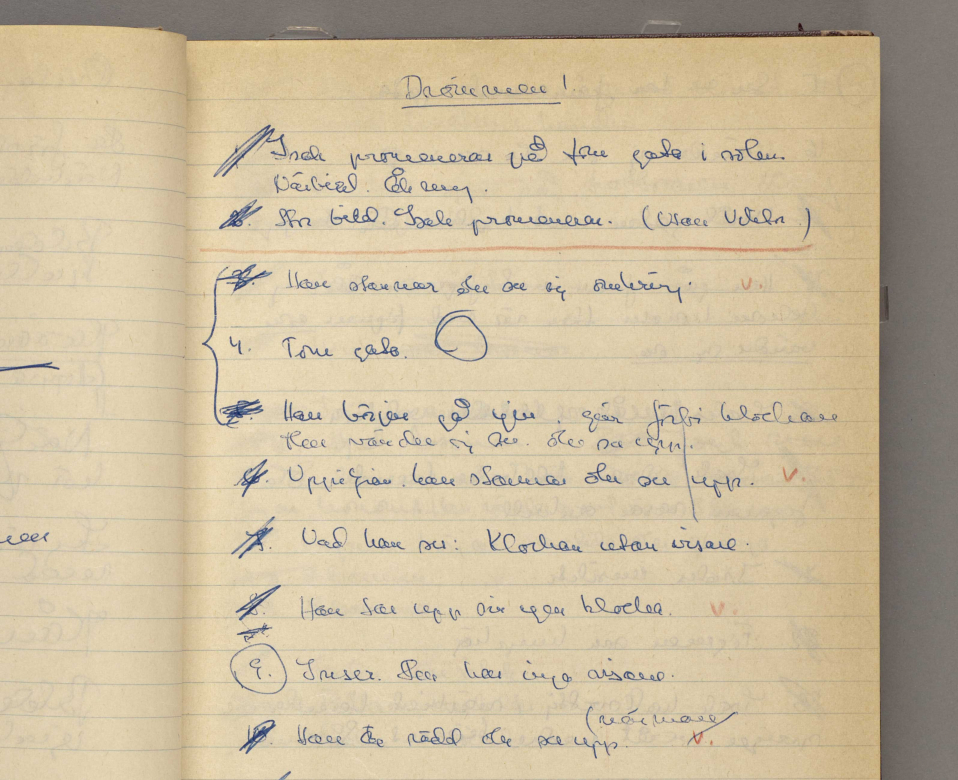 Drömmen!
1. Isak promenerar på tom gata i solen.
Närbild. Åkning.
2. Stor bild. Isak promenerar. (Utan Vittn)
3. Han stannar och ser sig omkring. v.
4. Tom gata.
5. Han börjar gå igen. går förbi klockan
Han vänder sig om. och ser upp.
6. Uppifrån. han stannar och ser upp. v.
7. Vad han ser: Klockan utan visare.
8. Han tar upp sin egen klocka. v.
9. Insert. Den har inga visare.
(närmare
10. Han är rädd och ser upp. v.